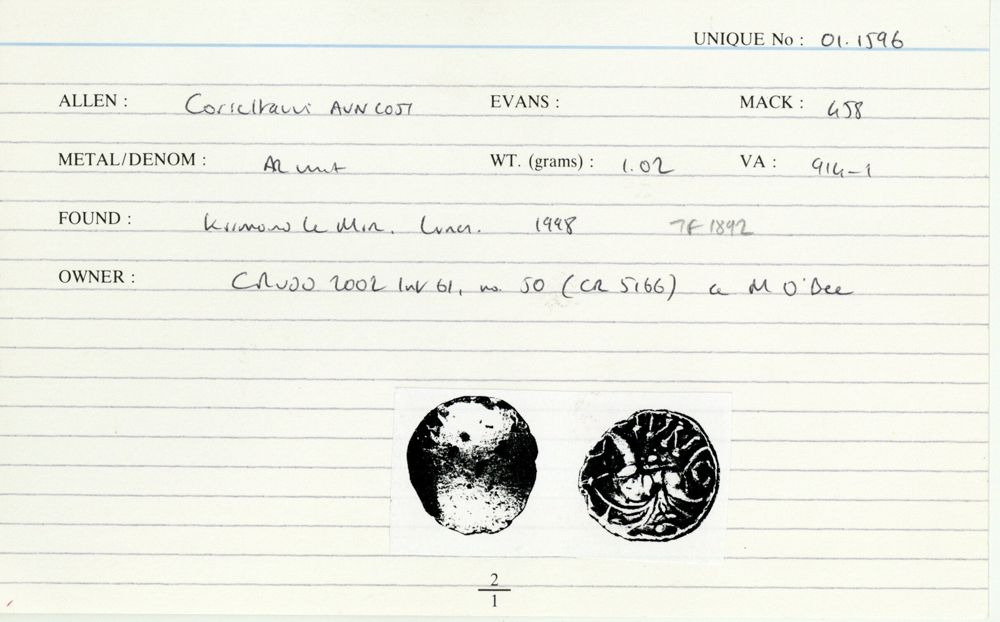 UNIQUE No : 01.1596
ALLEN : Corieltauvi AVN COST EVANS : MACK : 458
METAL/DENOM : AR unit WT. (grams) : 1.02 VA : 914-1
FOUND : Kirmond Le Mire. Lincs. 1998 TF 1892
OWNER : CRUDD 2002 list 61, no. 50 (CR 5166) a M O'Bee
2
1